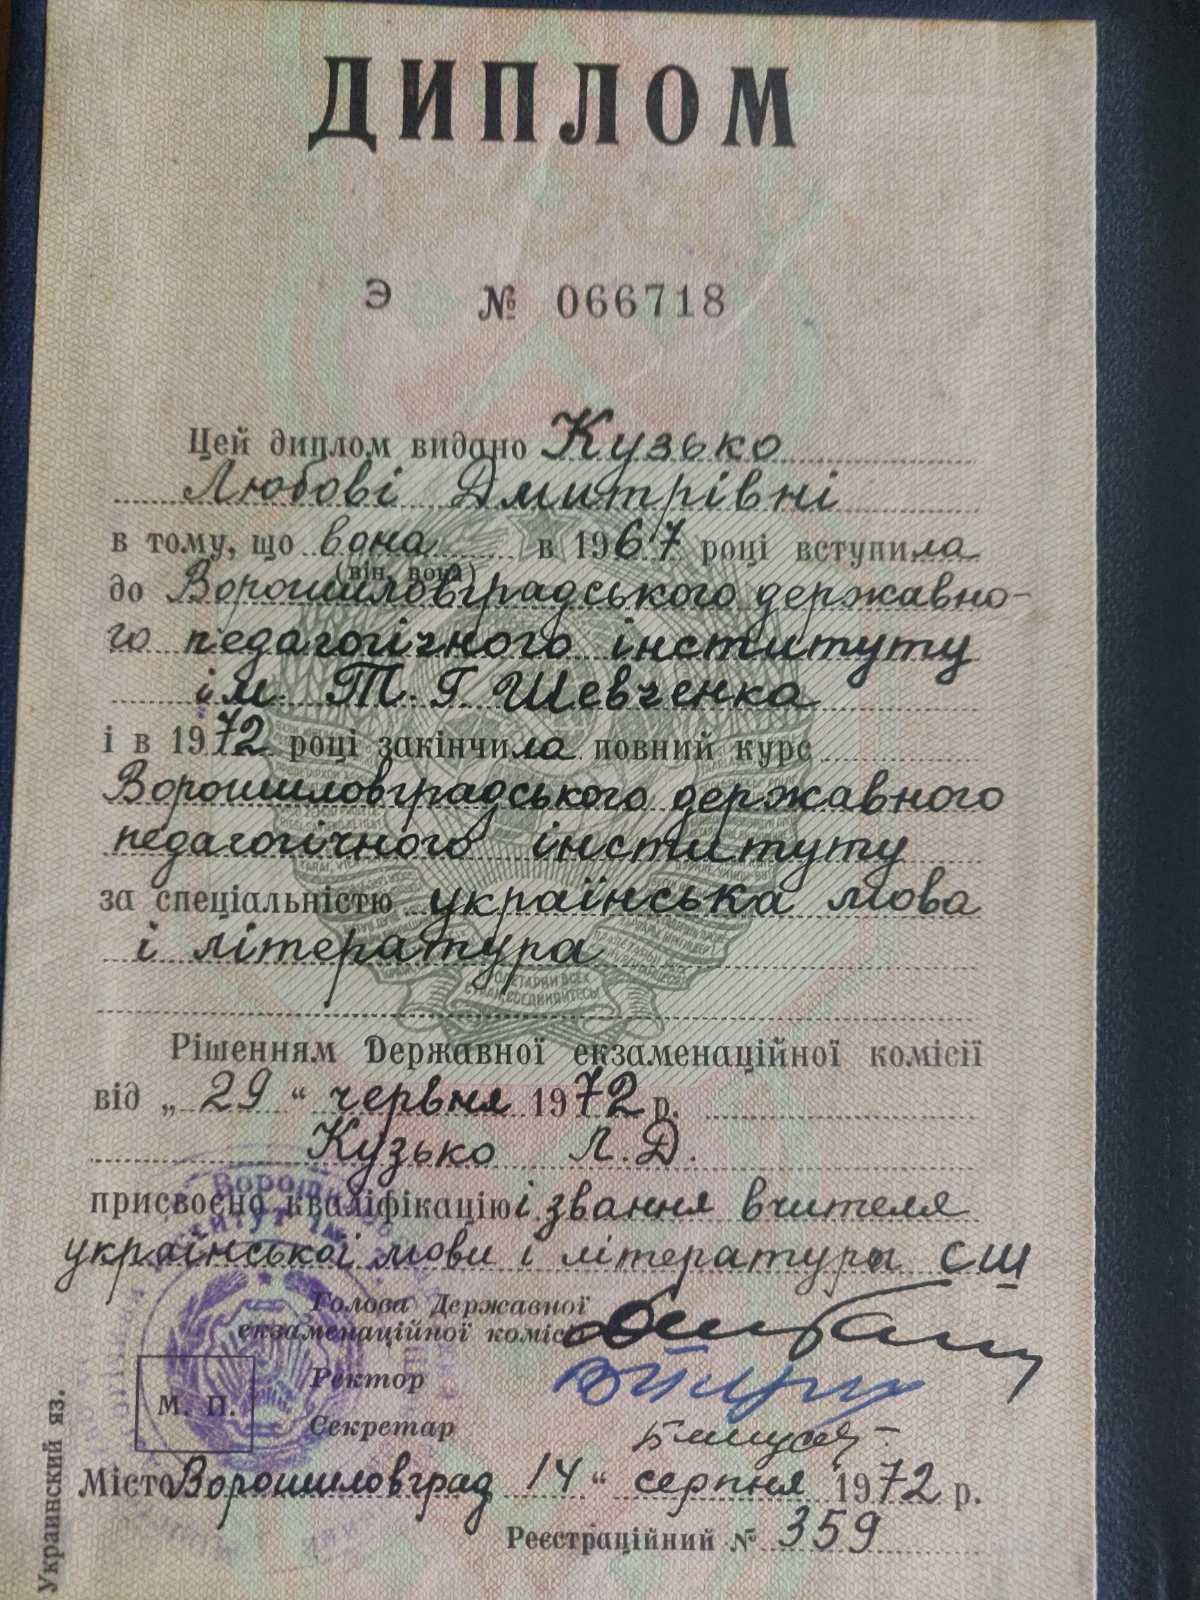 ДИПЛОМ
Э № 066718
Цей диплом видано Кузько
Любові Дмитрівні
в тому, що вона в 1967 році вступила
(він, вона)
до Ворошиловградського державно-
го педагогічного інституту
ім. Т. Г. Шевченка
і в 1972 році закінчила повний курс
Ворошиловградського державного
педагогічного інституту
за спеціальністю українська мова
і література
ПРОЛЕТАРИИ ВСЕХ
СТРАН, СОЕДИНЯЙТЕСЬ!
Рішенням Державної екзаменаційної комісії
від „29“ червня 1972 р.
Кузько Л. Д.
присвоєно кваліфікацію і звання вчителя
української мови і літератури СШ
Голова Державної
екзаменаційної комісії
Ректор
М. П.
Секретар
Місто Ворошиловград 14“ серпня 1972 р.
Реєстраційний № 359
Украинский яз.